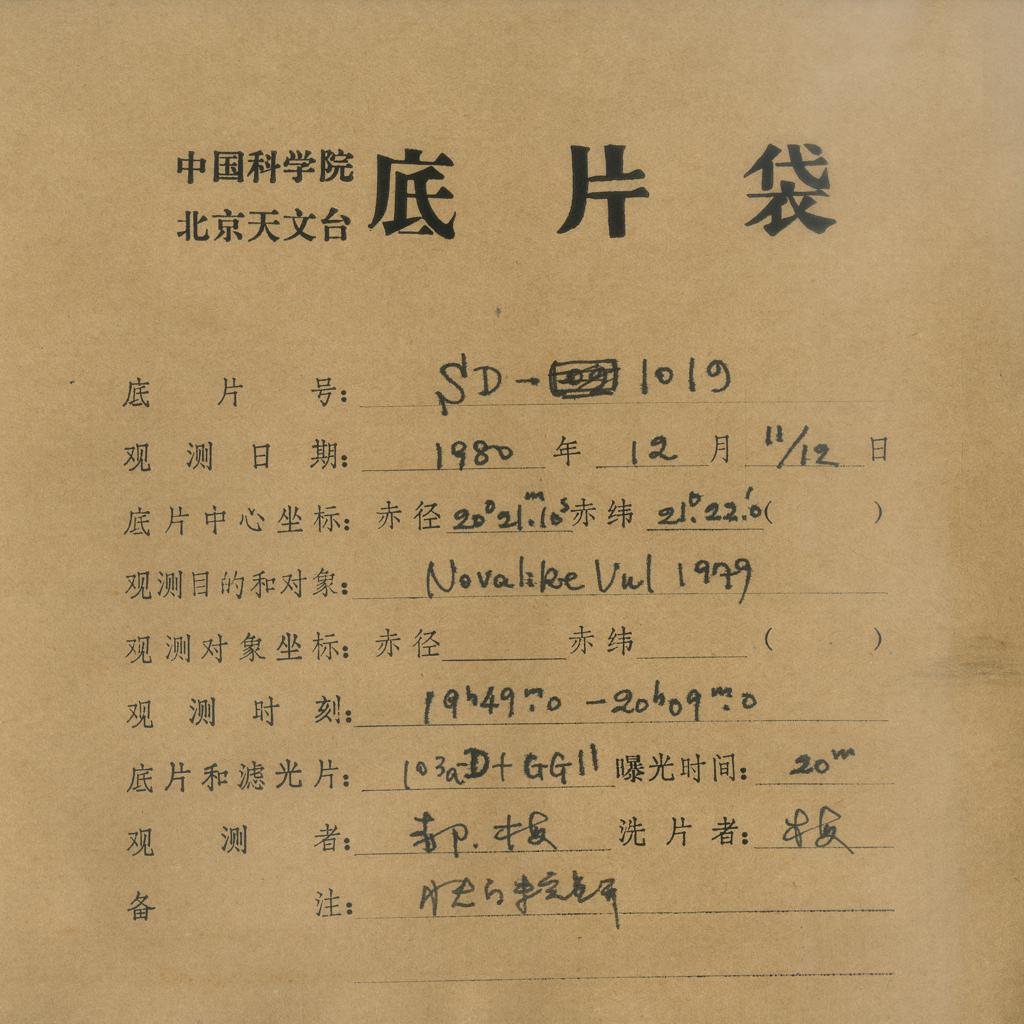 中国科学院
北京天文台
底片袋
底片号: SD- 1019
观测日期: 1980 年 12 月 11/12 日
底片中心坐标: 赤径 20ʰ21ᵐ.10ˢ 赤纬 21°.22'.0 ( )
观测目的和对象: Novalike Vul 1979
观测对象坐标: 赤径 赤纬 ( )
观测时刻: 19ʰ49ᵐ.0 - 20ʰ09ᵐ.0
底片和滤光片: 103a-D+GG11 曝光时间: 20ᵐ
观测者: 郝. 洗片者:
备注: